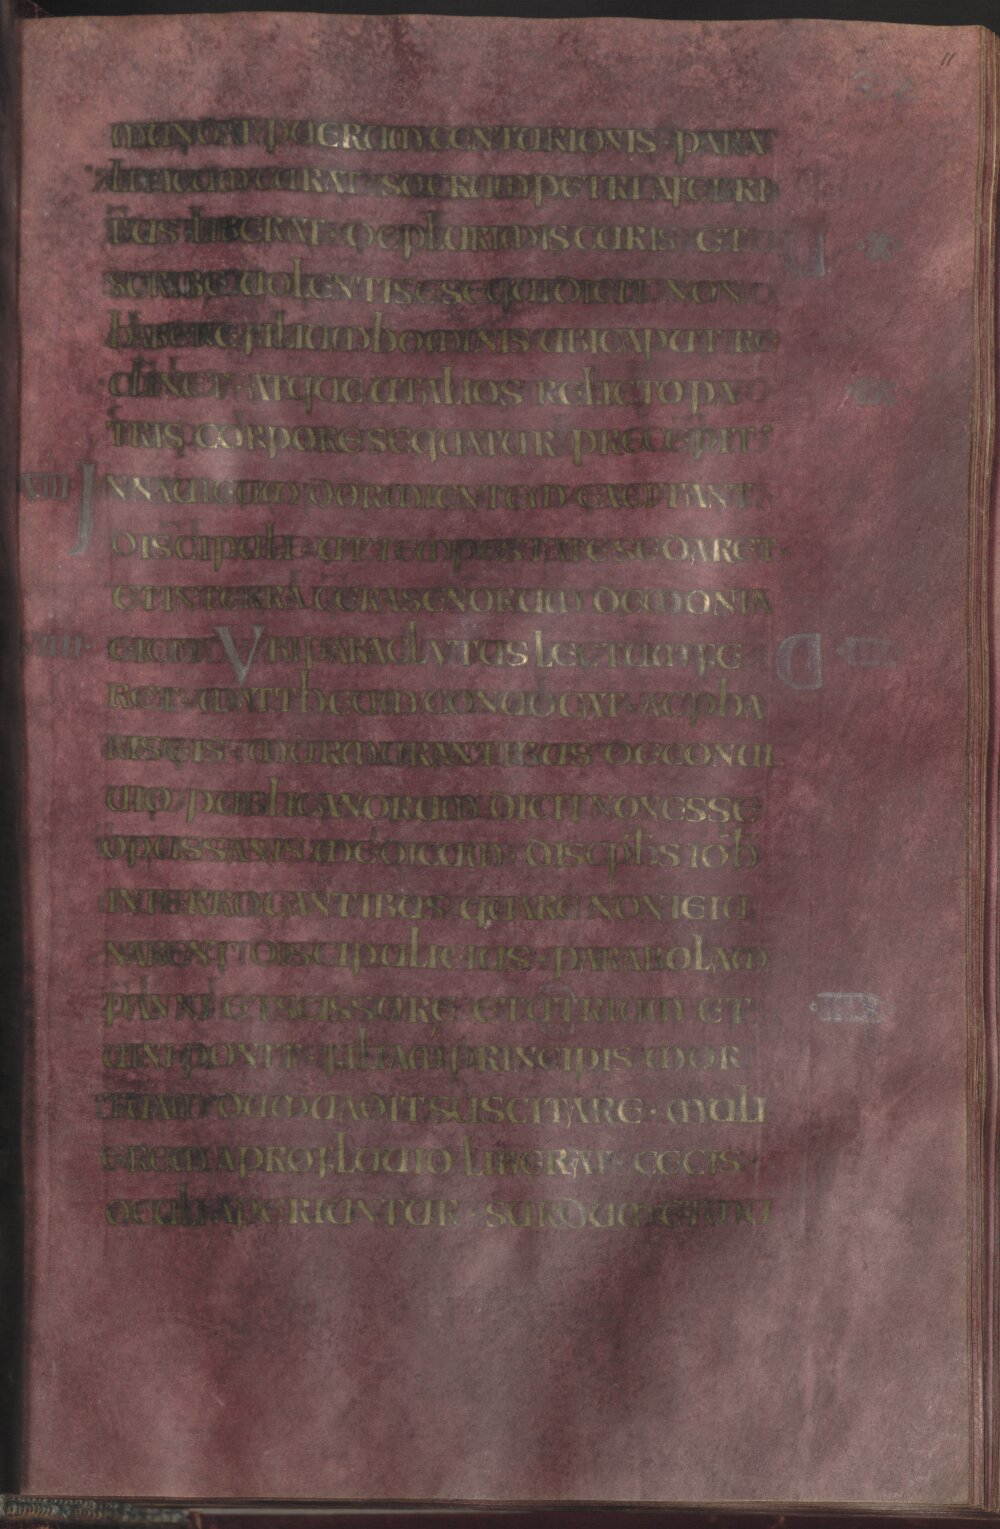 11
MUNDAT PUERUM CENTURIONIS · PARA
LITICUM CURAT SOCRUM PETRI A FEBRI
BUS LIBERAT · DE PLURIMIS CURIS · ET
SCRIBE UOLENTI SE SEQUI DICIT NON
HABERE FILIUM HOMINIS UBI CAPUT RE
CLINET · ATQUE UT ALIOS RELICTO PA
TRIS CORPORE SEQUATUR PRECEPIT
·VIII· IN NAUI CUM DORMIENTEM EXCITANT
DISCIPULI · UT TEMPESTATE SEDARET
ET IN TERRA GERASENORUM DEMONIA
·VIIII· EICIT UBI PARACLYTUS LECTUM FE
RET · MATTHEUM CONUOCAT · AC PHA
RISEIS · MURMURANTIBUS DE CONUI
UIO PUBLICANORUM DICIT NON ESSE
OPUS SANIS MEDICUM · DISCIPLIS IOH
INTERROGANTIBUS QUARE NON IEIU
NARENT DISCIPULI EIUS · PARABOLAM
PANNI ET SCISSURE ET UTRIUM ET
UINI PONIT · FILIAM PRINCIPIS MOR
TUAM DUM UADIT SUSCITARE · MULI
EREM A PROFLUUIO LIBERAT · CECIS
OCULI APERIUNTUR · SURDUM ET MU